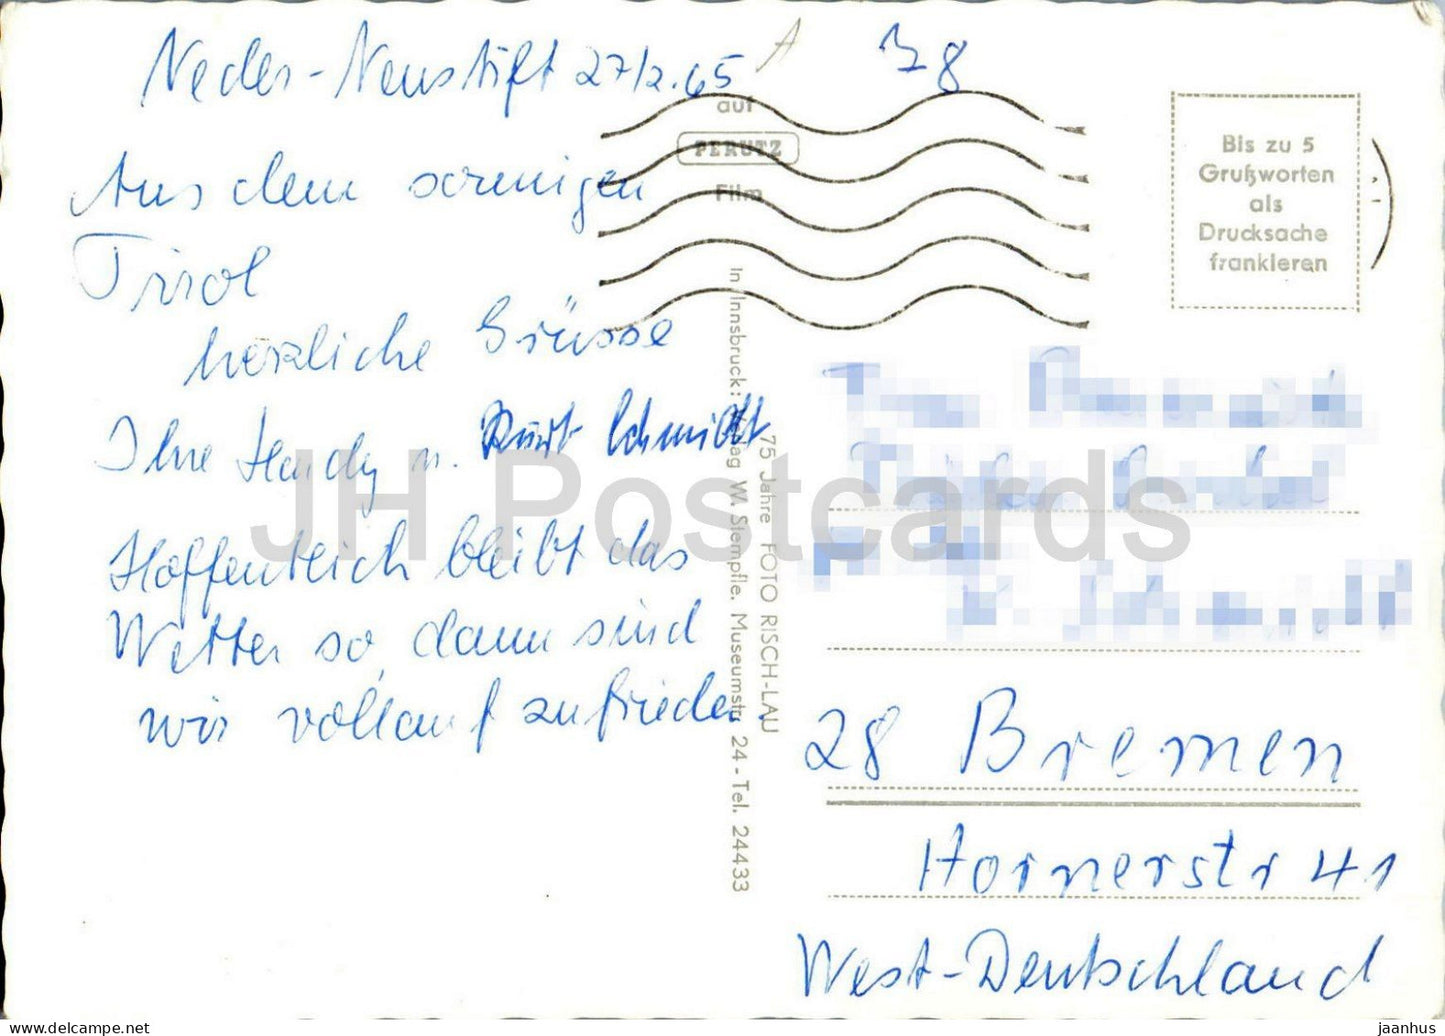 Neder-Neustift 27/2.65
A
28
Aus dem sonnigen
Tirol
herzliche Grüsse
Ihre Hardy u. Kurt Schmidt
Hoffentlich bleibt das
Wetter so, dann sind
wir vollauf zufrieden.
auf
PERUTZ
Film
In Innsbruck: Verlag W. Stempfle, Museumstr. 24 - Tel. 24433
75 Jahre FOTO RISCH-LAU
Bis zu 5
Grußworten
als
Drucksache
frankieren
28 Bremen
Hornerstr 41
West-Deutschland
JH Postcards
www.delcampe.net
jaanhus